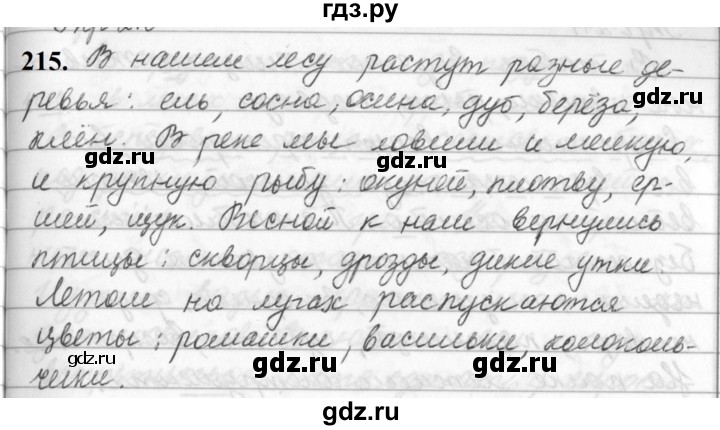 гдз.ру
215. В нашем лесу растут разные де-
ревья: ель, сосна, осина, дуб, берёза,
gdz.ru
клён. В реке мы ловили и мелкую,
gdz.ru gdz.ru
и крупную рыбу: окуней, плотву, ер-
шей, щук. Весной к нам вернулись
птицы: скворцы, дрозды, дикие утки.
Летом на лугах распускаются
цветы: ромашки, васильки, колоколь-
gdz.ru gdz.ru gdz.ru
чики.
gdz.ru